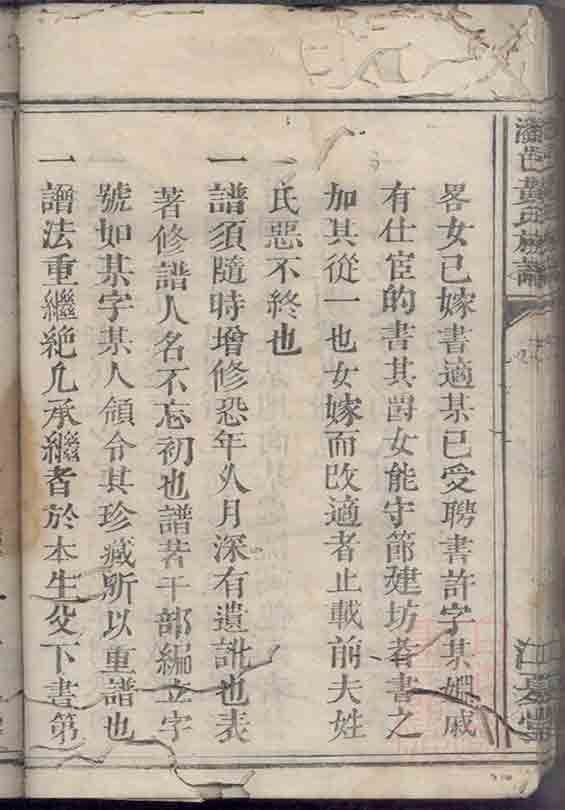 潘邑黄氏族譜
江夏堂
畧女已嫁書適某已受聘書許字某嫻戚
有仕宦的書其爵女能守節建坊者書之
加其從一也女嫁而改適者止載前夫姓
氏惡不終也
一譜須隨時增修恐年久月深有遺訛也表
著修譜人名不忘初也譜若干部編立字
號如某字某人領令其珍藏所以重譜也
一譜法重繼絶凡承繼者於本生父下書第